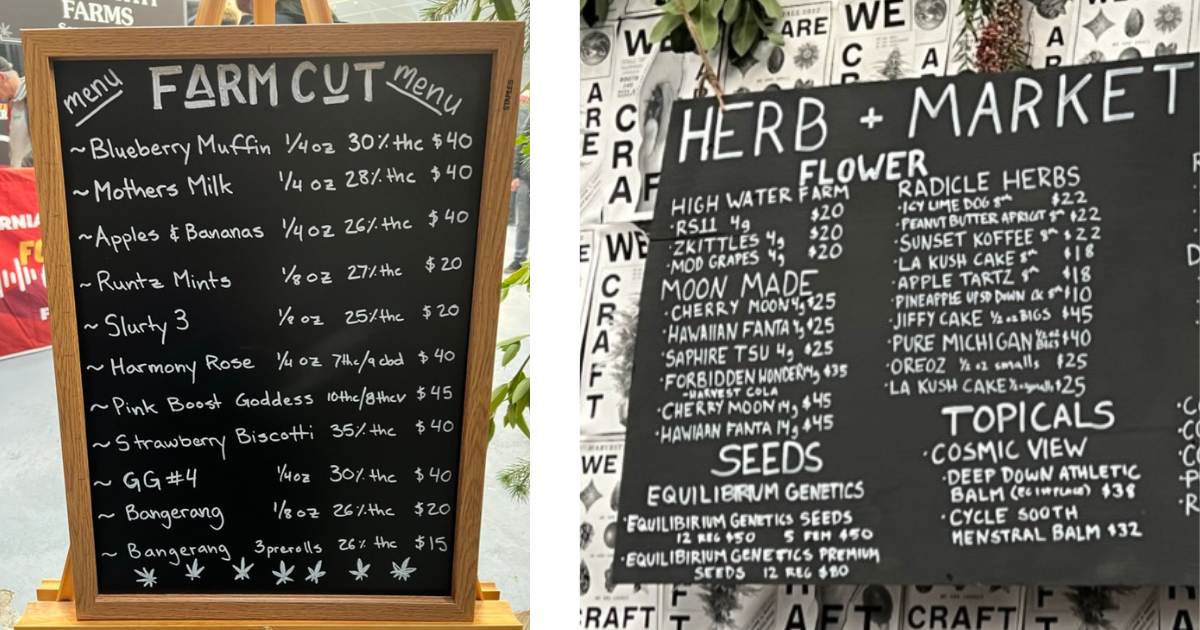 FARMS
menu FARM CUT menu
STAPLES
~ Blueberry Muffin 1/4 oz 30% thc $40
~ Mothers Milk 1/4 oz 28% thc $40
~ Apples & Bananas 1/4 oz 26% thc $40
Runtz Mints 1/8 oz 27% thc $20
~ Slurty 3 1/8 oz 25% thc $20
~ Harmony Rose 1/4 oz 7thc/9cbd $40
~ Pink Boost Goddess 10thc/8thcv $45
~ Strawberry Biscotti 35% thc $40
~ GG #4 1/4 oz 30% thc $40
~ Bangerang 1/8 oz 26% thc $20
~ Bangerang 3 prerolls 26% thc $15
HERB + MARKET
FLOWER
HIGH WATER FARM
·RS11 4g $20
·ZKITTLES 4g $20
·MOD GRAPES 4g $20
MOON MADE
·CHERRY MOON 4g $25
·HAWAIIAN FANTA 4g $25
·SAPHIRE TSU 4g $25
·FORBIDDEN WONDER 14g $35
-HARVEST COLA
·CHERRY MOON 14g $45
·HAWIAAN FANTA 14g $45
SEEDS
EQUILIBRIUM GENETICS
·EQUILIBIRIUM GENETICS SEEDS
12 REG $50 5 FEM $50
·EQUILIBIRIUM GENETICS PREMIUM
SEEDS 12 REG $80
RADICLE HERBS
·ICY LIME DOG 8th $22
·PEANUT BUTTER APRICOT 8th $22
·SUNSET KOFFEE 8th $22
·LA KUSH CAKE 8th $18
·APPLE TARTZ 8th $18
·PINEAPPLE UPSD DOWN CK 8th $10
·JIFFY CAKE 1/2 oz BIGS $45
·PURE MICHIGAN 1/2 oz BIGS $40
·OREOZ 1/2 oz smalls $25
·LA KUSH CAKE 1/2 oz smalls $25
TOPICALS
·COSMIC VIEW
·DEEP DOWN ATHLETIC
BALM $38
·CYCLE SOOTH
MENSTRAL BALM $32
WE
ARE
CRAFT
WE
CRAFT
WE
CRAFT
CRAFT